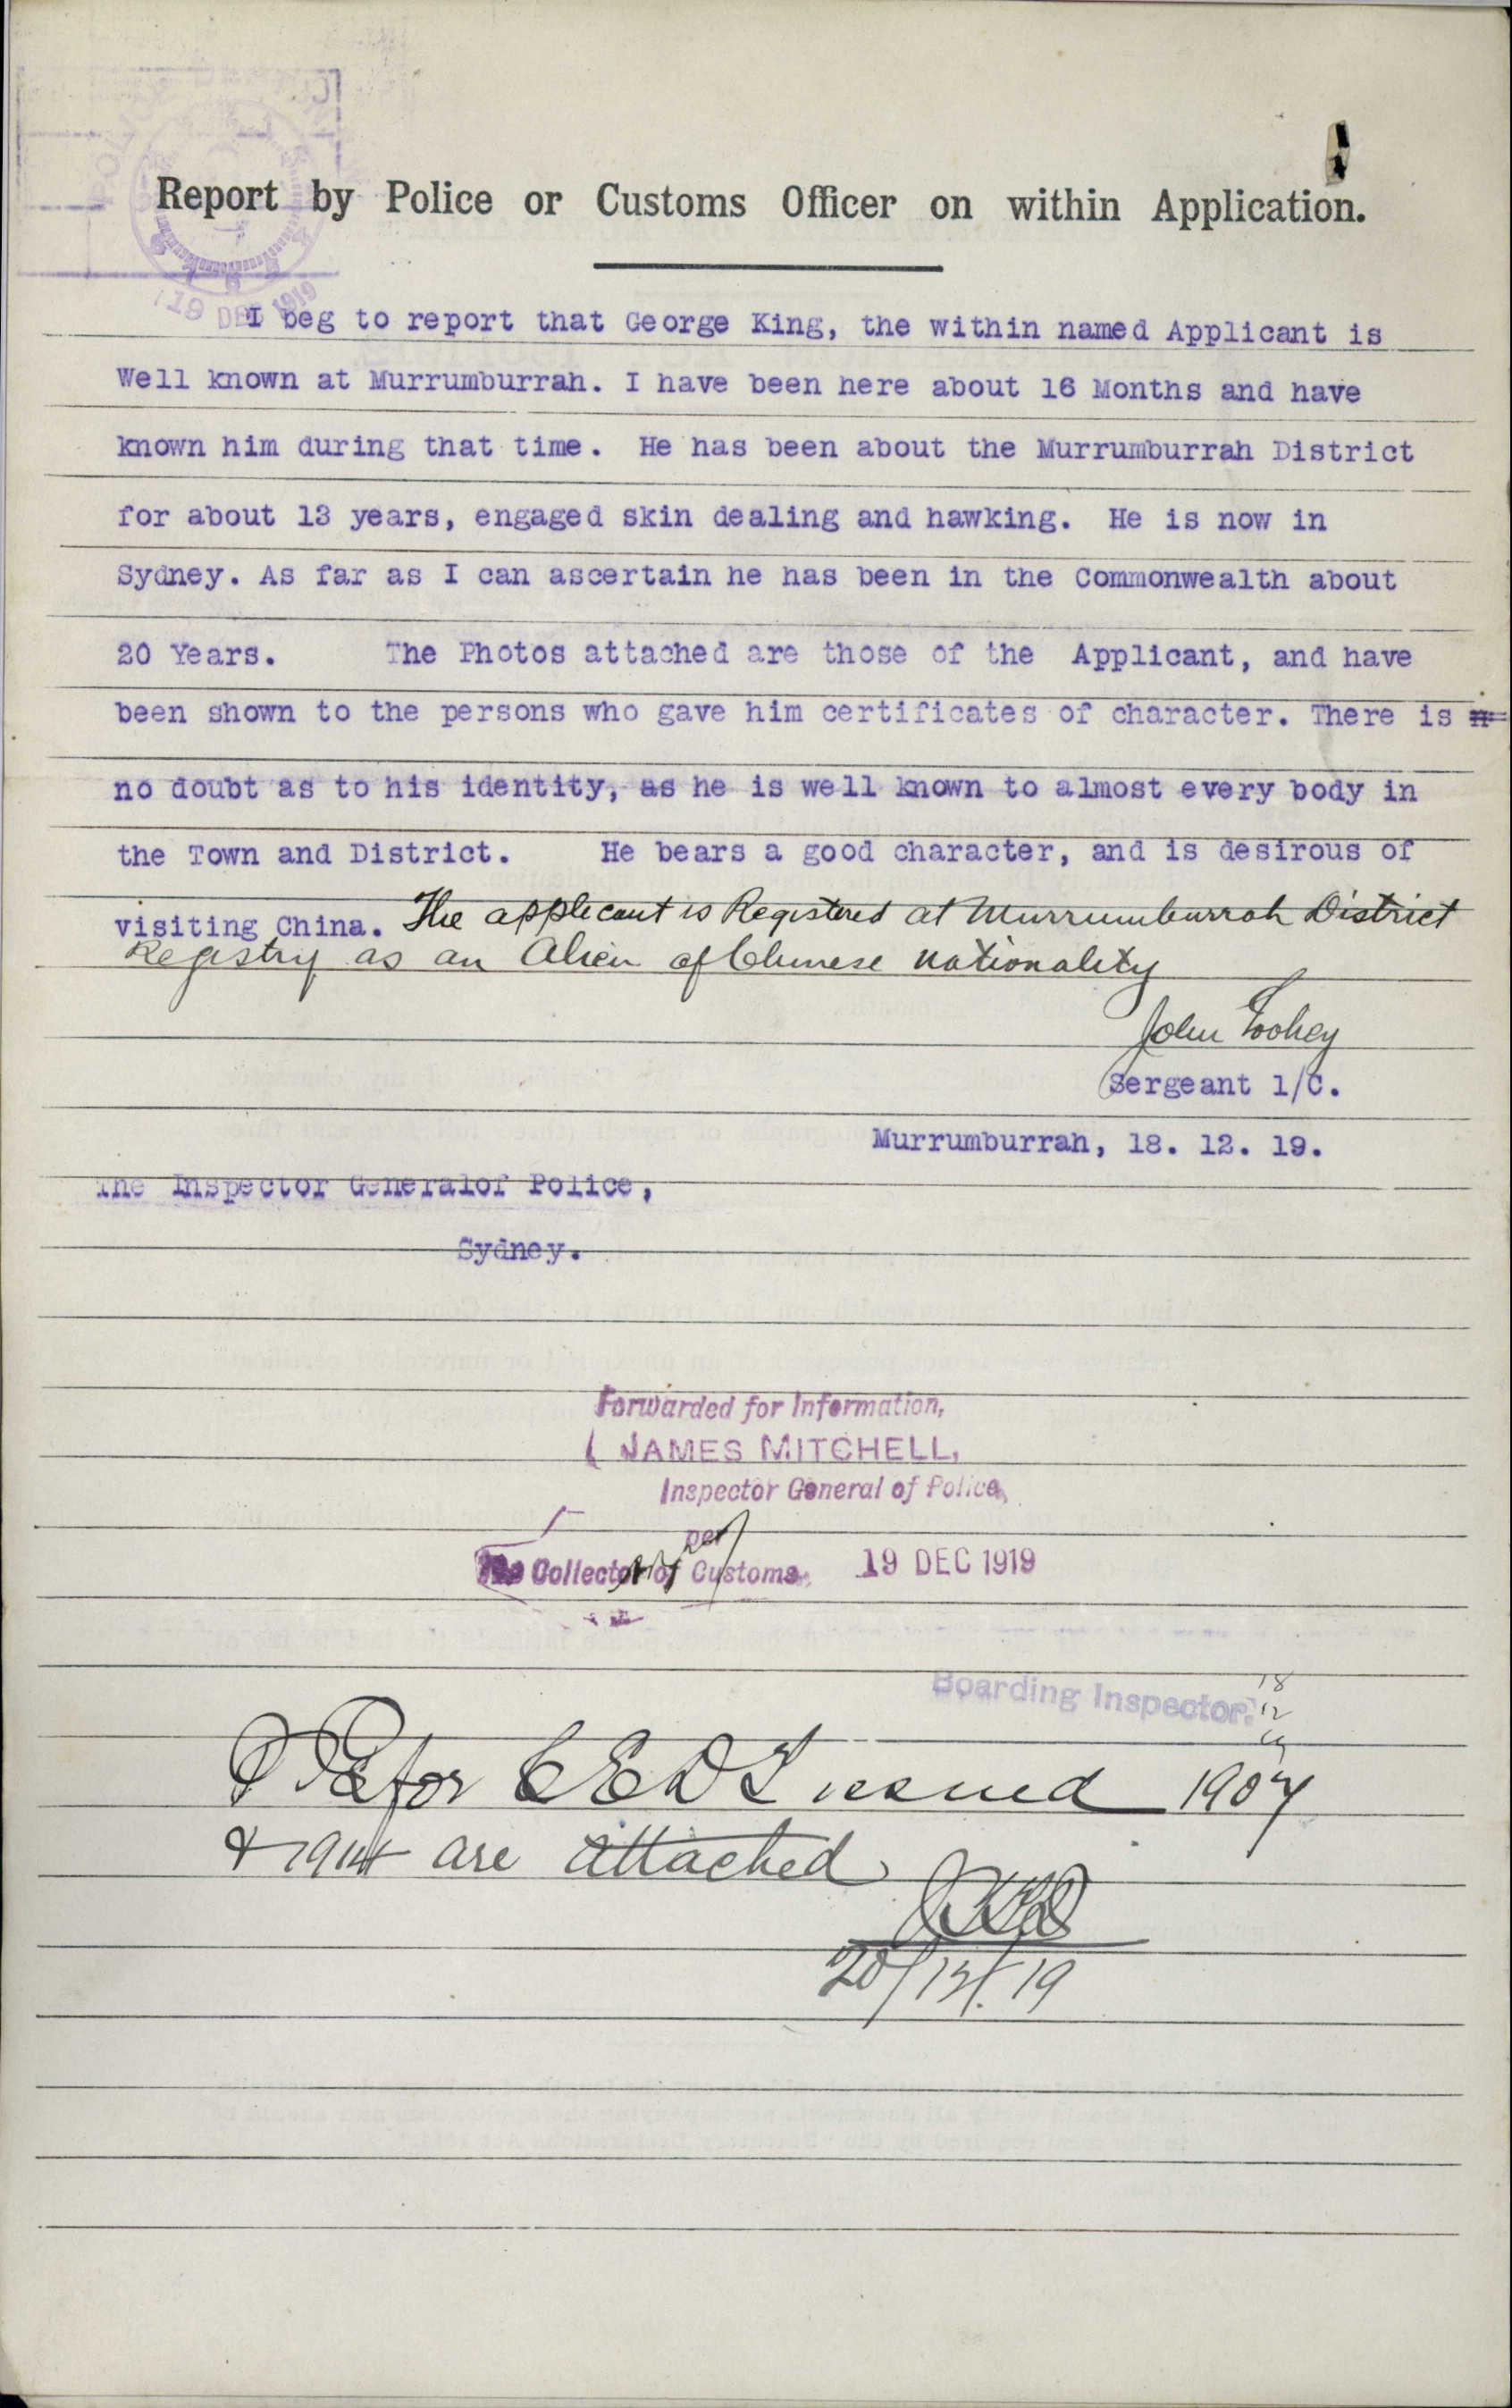 19 DEC 1919
Report by Police or Customs Officer on within Application.
I beg to report that George King, the within named Applicant is
Well known at Murrumburrah. I have been here about 16 Months and have
known him during that time. He has been about the Murrumburrah District
for about 13 years, engaged skin dealing and hawking. He is now in
Sydney. As far as I can ascertain he has been in the Commonwealth about
20 Years. The Photos attached are those of the Applicant, and have
been shown to the persons who gave him certificates of character. There is n
no doubt as to his identity, as he is well known to almost every body in
the Town and District. He bears a good character, and is desirous of
visiting China. The applicant is Registered at Murrumburrah District
Registry as an Alien of Chinese nationality
John Toohey
Sergeant 1/C.
Murrumburrah, 18. 12. 19.
The Inspector Generalof Police,
Sydney.
Forwarded for Information,
JAMES MITCHELL,
Inspector General of Police,
per
The Collector of Customs. 19 DEC 1919
Boarding Inspector. 18
12
19
for CEDT issued 1907
& 1914 are attached
20/12/19